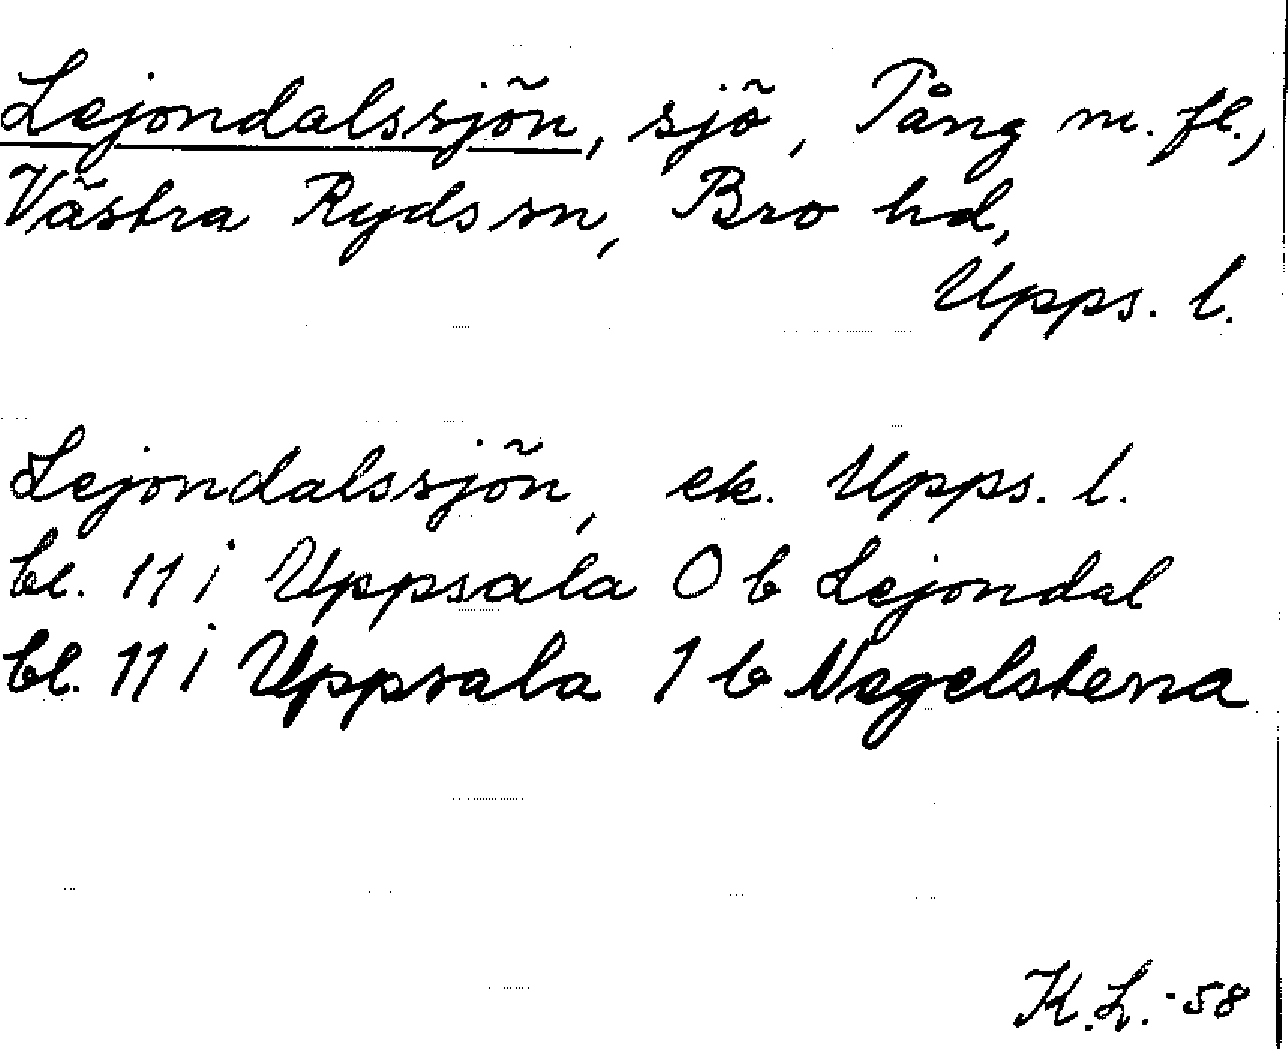 Lejondalssjön, sjö, Tång m. fl.,
Västra Ryds sn, Bro hd,
Upps. l.
Lejondalssjön, ek. Upps. l.
bl. 11 i Uppsala 0 b Lejondal
bl. 11 i Uppsala 1 b Negelstena
K.L. -58